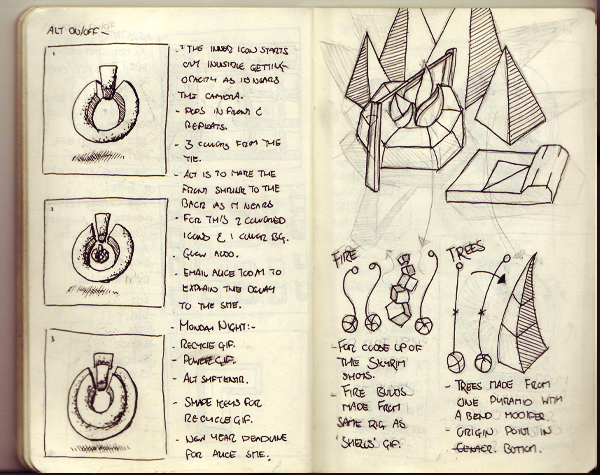 ALT ON/OFF-
1
2
3
- THE INNER ICON STARTS
OUT INVISIBLE GETTING
OPACITY AS IS NEARS
THE CAMERA.
- POPS IN FRONT &
REPEATS.
- 3 COLOURS FROM THE
TIE.
- ALT IS TO MAKE THE
FRONT SHRINK TO THE
BACK AS IT NEARS
- FOR THIS 2 COLOURED
ICONS & 1 COLOUR BG.
- GLOW ALSO.
- EMAIL ALICE TO
EXPLAIN THE DELAY
TO THE SITE.
- MONDAY NIGHT:-
- RECYCLE GIF.
- POWER GIF.
- ALT
- SHAPE KEYS FOR
RECYCLE GIF.
- NEW YEAR DEADLINE
FOR ALICE SITE.
FIRE
- FOR CLOSE UP OF
THE SKYRIM
SHOTS.
- FIRE BUILDS
MADE FROM
SAME RIG AS
'SHELLS' GIF.
TREES
- TREES MADE FROM
ONE PYRAMID WITH
A BEND MODIFIER.
- ORIGIN POINT IN
CENTER. BOTTOM.